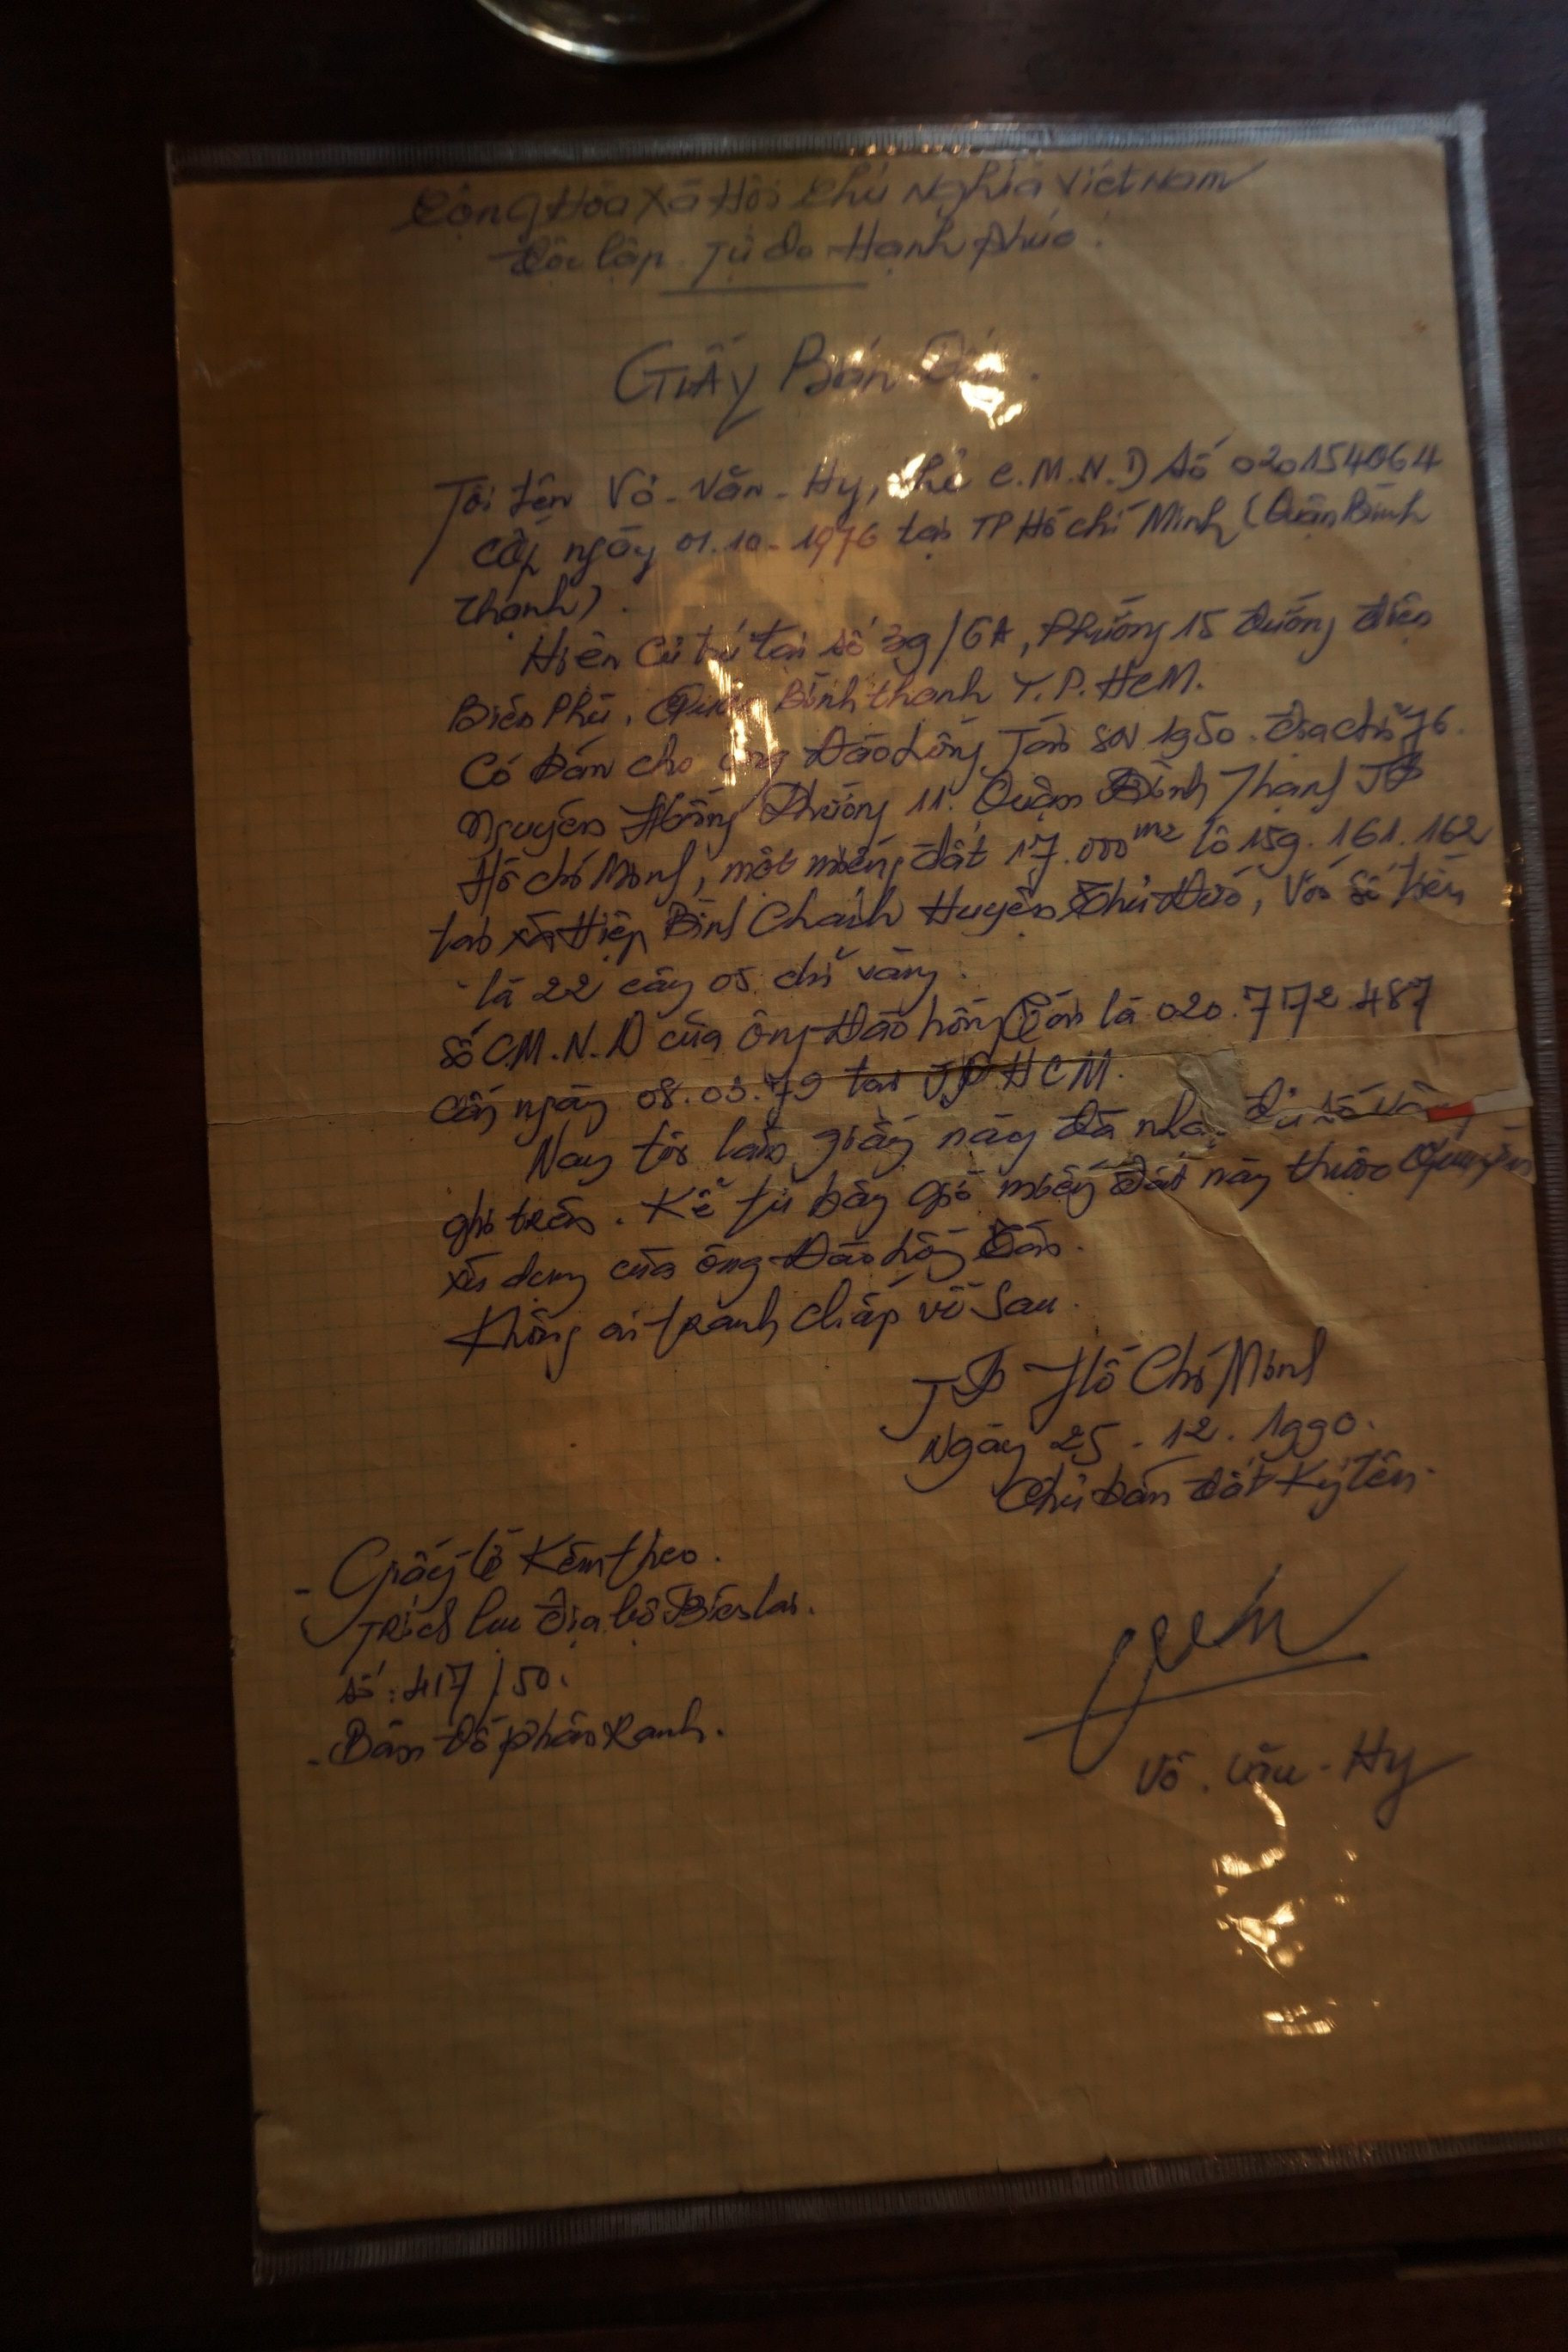 Cộng Hòa Xã Hội Chủ Nghĩa Việt Nam
Độc lập Tự do Hạnh Phúc.
Giấy Bán
Tôi tên Võ-Văn-Hy, C.M.N.D số 020154064
Cấp ngày 01.10-1976 tại TP Hồ Chí Minh (Quận Bình
Thạnh).
Hiện Cư trú tại số 39/6A, Phường 15 đường Điện
Biên Phủ, Quận Bình thạnh T.P. HCM.
Có Bán cho ông Đào Hồng Tán SN 1950. địa chỉ 76.
Nguyên Hồng Phường 11. Quận Bình Thạnh TP
Hồ chí Minh, một miếng đất 17.000 m2 lô 159. 161. 162
tại xã Hiệp Bình Chánh Huyện Thủ Đức, Với số tiền
là 22 cây 05 chỉ vàng.
Số CM.N.D của ông Đào hồng Tán là 020.772.487
Cấp ngày 08.03.79 tại TP HCM.
Nay tôi làm giấy này đã đủ số vàng
ghi trên. Kể từ bây giờ miếng đất này thuộc Quyền
xử dụng của ông Đào hồng Tán.
Không ai tranh chấp về sau.
TP Hồ Chí Minh
Ngày 25.12.1990.
Chủ bán đất Ký tên.
- Giấy tờ Kèm theo.
Trích lục địa bộ
số: 417/50.
- Bản đồ phân Ranh.
Võ. Văn-Hy